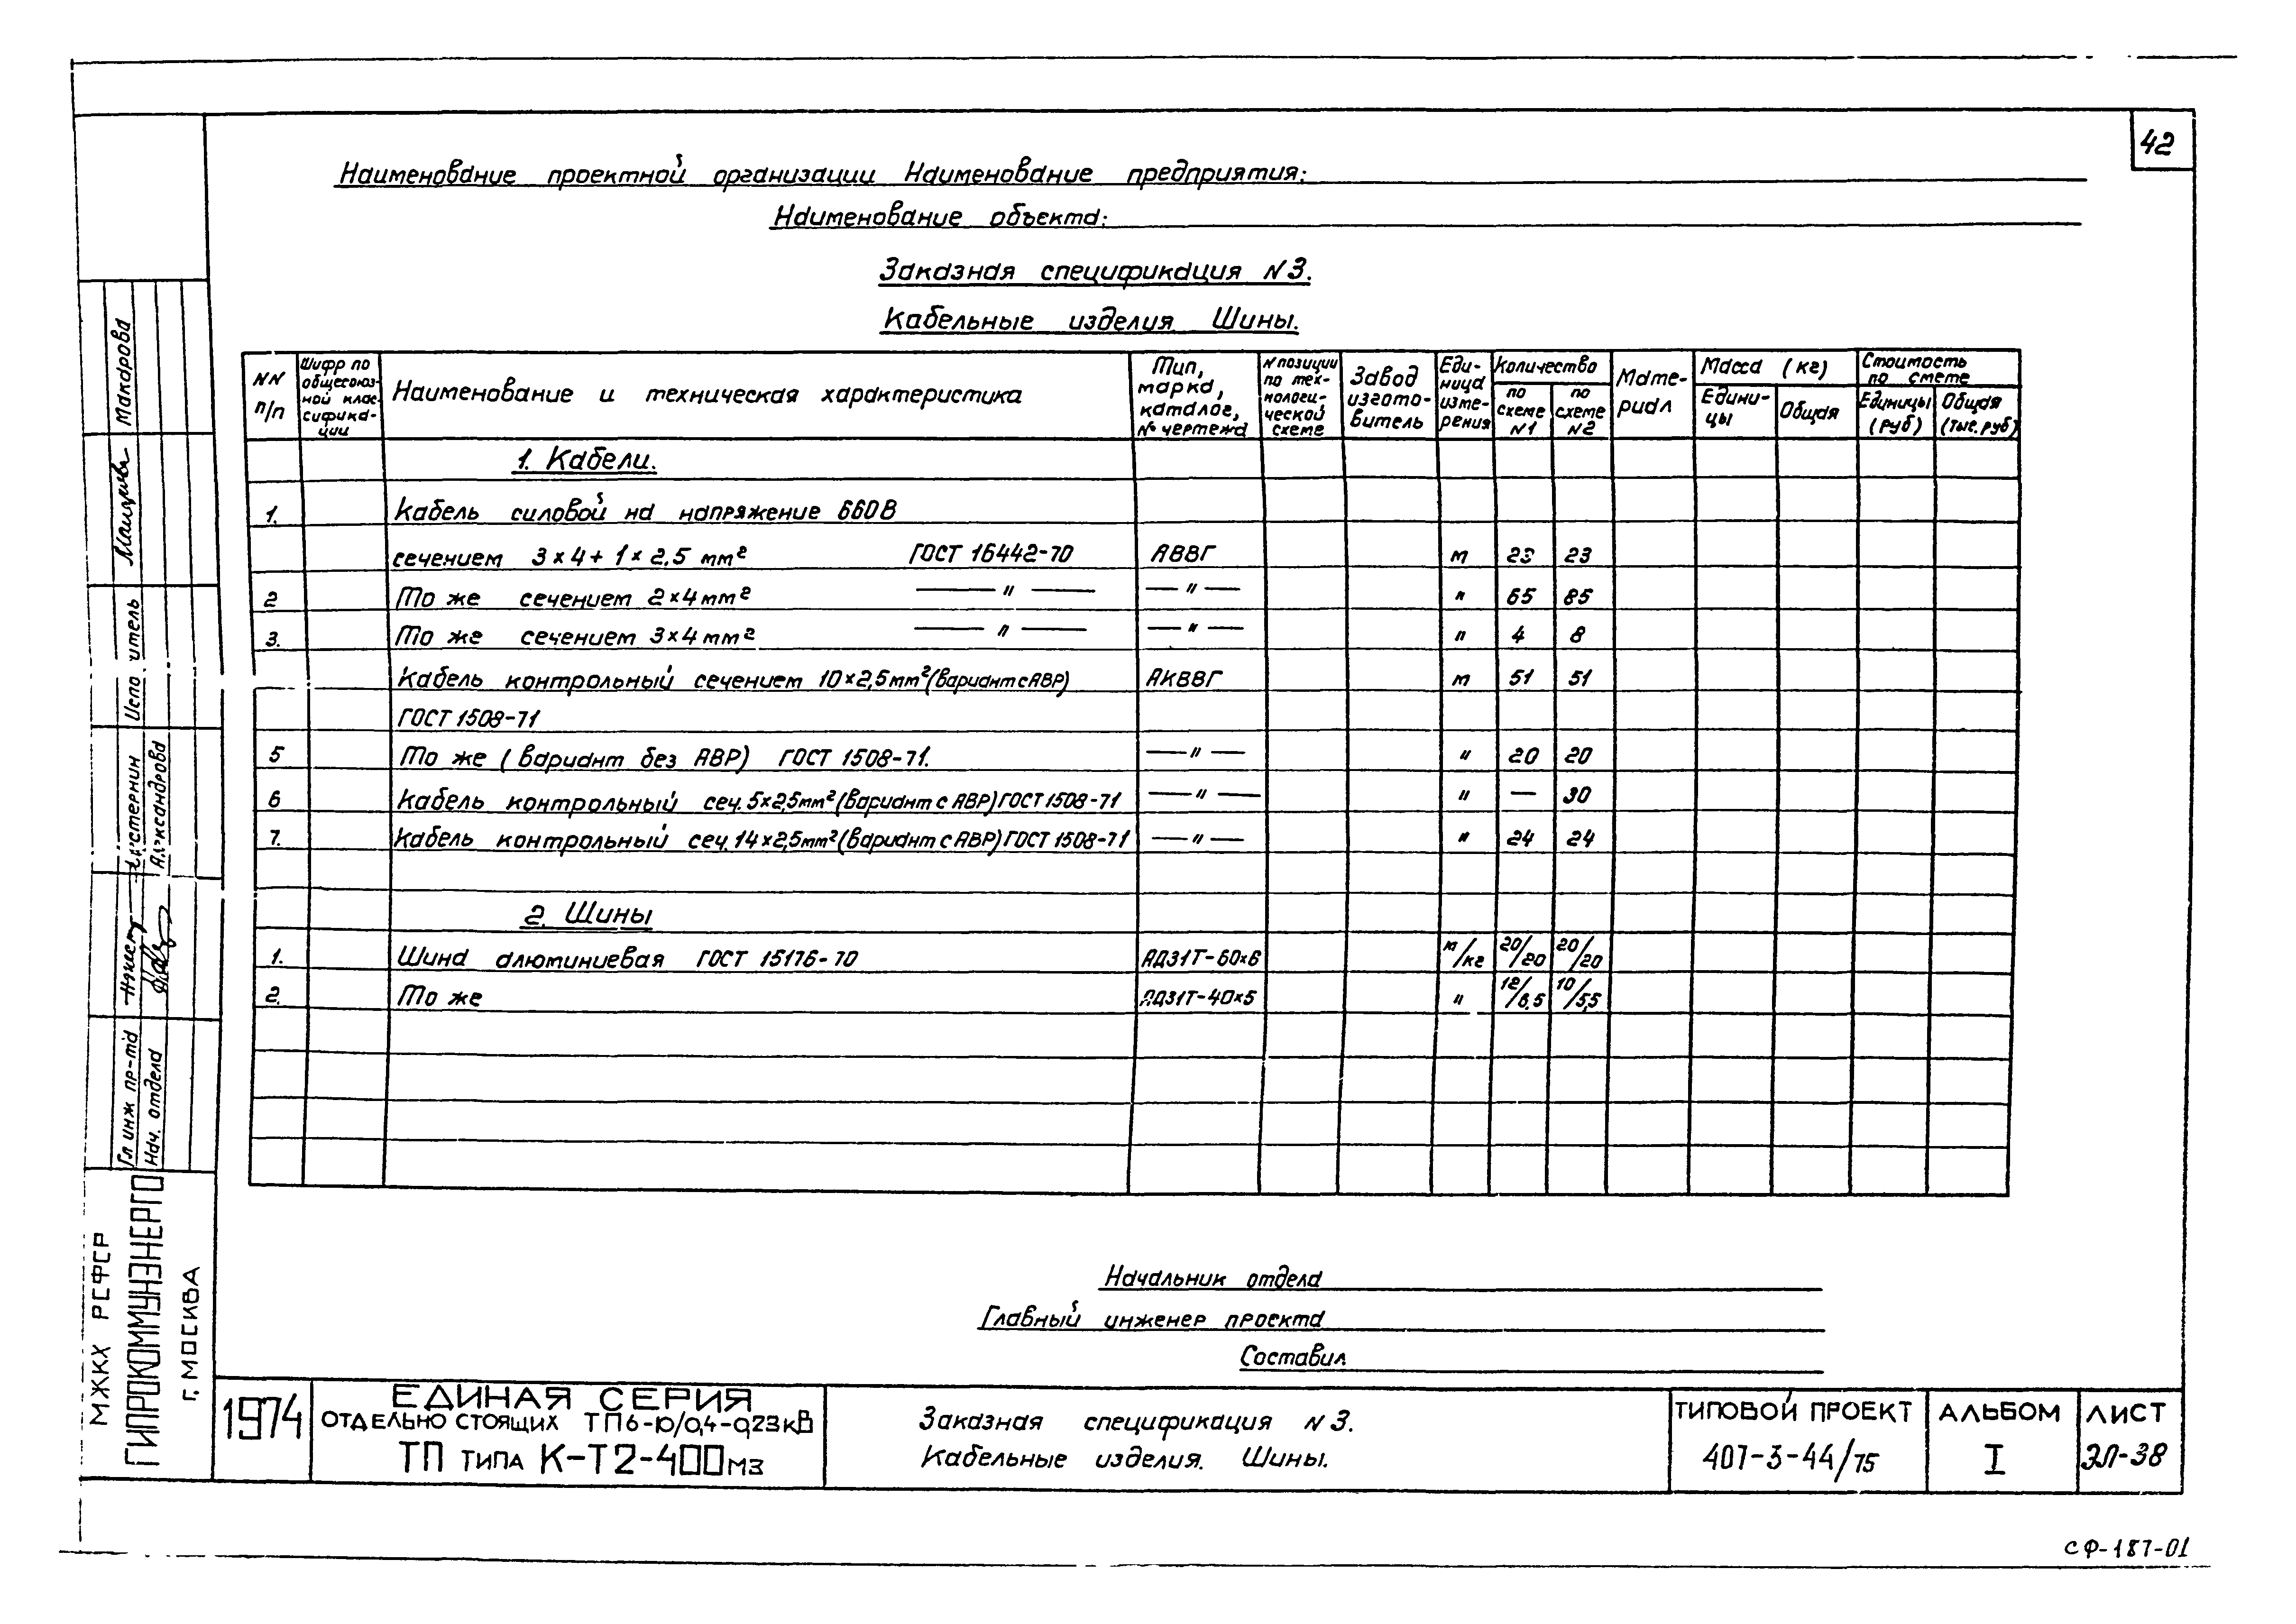 42
Наименование проектной организации Наименование предприятия:
Наименование объекта:
Заказная спецификация N3.
Кабельные изделия Шины.
NN п/п
Шифр по общесоюз-ной клас-сифика-ции
Наименование и техническая характеристика
Тип, марка, каталог, № чертежа
N позиции по тех-нологи-ческой схеме
Завод изгото-витель
Еди-ница изме-рения
Количество
по схеме N1
по схеме N2
Мате-риал
Масса (кг)
Едини-цы
Общая
Стоимость по смете
Единицы (руб)
Общая (тыс. руб)
1. Кабели.
1. Кабель силовой на напряжение 660В
сечением 3×4+1×2.5 мм² ГОСТ 16442-70 АВВГ м 23 23
2 То же сечением 2×4мм² — " — — " — " 65 85
3. То же сечением 3×4мм² — " — — " — " 4 8
Кабель контрольный сечением 10×2,5мм² (вариант с АВР) АКВВГ м 51 51
ГОСТ 1508-71
5 То же (вариант без АВР) ГОСТ 1508-71. — " — " 20 20
6 Кабель контрольный сеч. 5×2,5мм² (вариант с АВР) ГОСТ 1508-71 — " — " — 30
7. Кабель контрольный сеч. 14×2,5мм² (вариант с АВР) ГОСТ 1508-71 — " — " 24 24
2. Шины
1. Шина алюминиевая ГОСТ 15176-70 АД31Т-60×6 м/кг 20/20 20/20
2. То же АД31Т-40×5 " 12/6,5 10/5,5
Начальник отдела
Главный инженер проекта
Составил
1974
ЕДИНАЯ СЕРИЯ
ОТДЕЛЬНО СТОЯЩИХ ТП 6-10/0,4-0,23кВ
ТП ТИПА К-Т2-400мз
Заказная спецификация N3.
Кабельные изделия. Шины.
ТИПОВОЙ ПРОЕКТ
407-3-44/75
АЛЬБОМ
I
ЛИСТ
ЭЛ-38
СФ-187-01
МЖКХ РСФСР
ГИПРОКОММУНЭНЕРГО
Г. МОСКВА
Гл инж пр-та
Нач. отдела
Александрова
Макарова